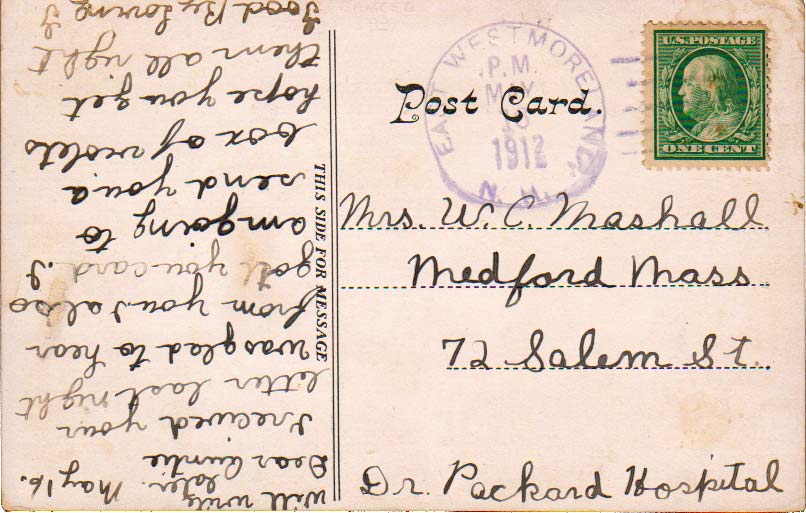 Post Card.
EAST WESTMORELAND,
P.M.
MAY
1912
N. H.
U.S. POSTAGE
ONE CENT
Mrs. W. C. Mashall
Medford Mass
72 Salem St.
Dr. Packard Hospital
THIS SIDE FOR MESSAGE
May 16.
Dear Auntie
I recived your
letter last night
was glad to hear
from you. I also
gott you card. I
am going to
send you a
box of violets
hope you get
them all right
Good By loving I
will write
later.